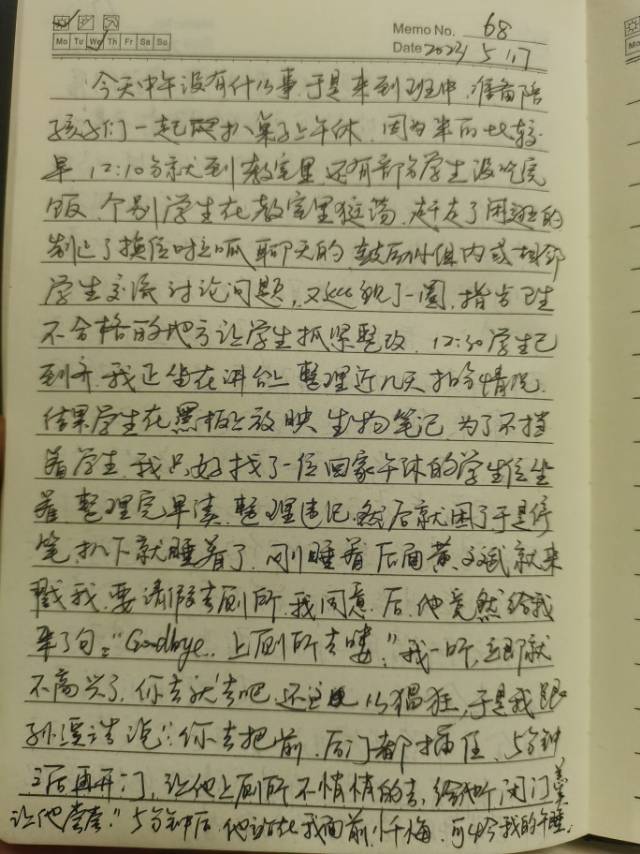 Memo No. 68
Mo Tu We Th Fr Sa Su
Date 2023 5 17
今天中午没有什么事,于是来到班中,准备陪
孩子们一起趴桌子上午休,因为来的比较
早,12:10分就到教室里,还有部分学生没吃完
饭,个别学生在教室里逛荡,赶走了闲逛的
制止了换位时 聊天的,鼓励小组内或相邻
学生交流讨论问题,又巡视了一圈,指出卫生
不合格的地方让学生抓紧整改,12:30学生已
到齐,我正坐在讲台上整理近几天扣分情况,
结果学生在黑板上放映生物笔记,为了不挡
着学生,我只好找了一位回家午休的学生位坐
着,整理完早读,整理违纪,然后就困了于是停
笔,趴下就睡着了,刚睡着后面黄文斌就来
戳我,要请假去厕所,我同意后,他竟然给我
来了句:“Goodbye,上厕所去喽!”我一听,立即就
不高兴了,你去就去吧,还这么猖狂,于是我跟
孙 说:“你去把前、后门都插住,5分钟
之后再开门,让他上厕所不悄悄的去,给他吃闭门羹
让他尝尝。”5分钟后,他站在我面前忏悔,可怜我的午睡。